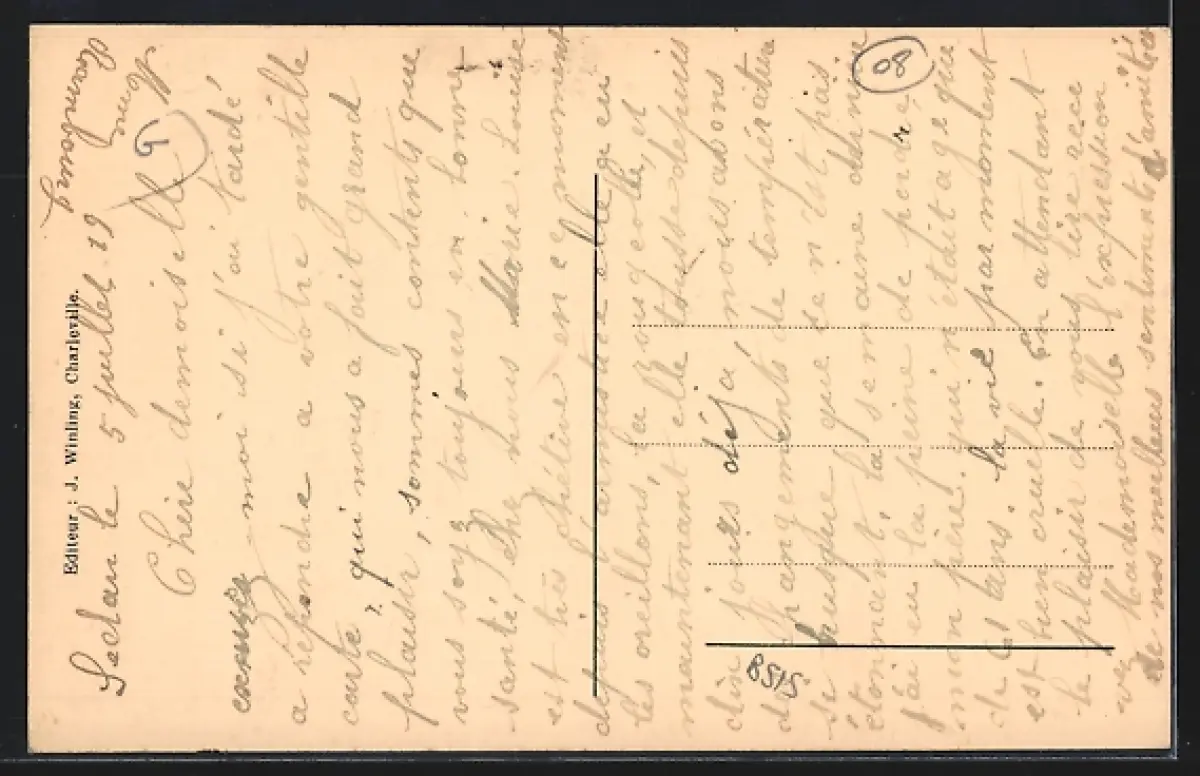 Editeur : J. Winling, Charleville.
Sedan le 5 juillet 19
Chère demoiselle
excusez moi si j'ai tardé
a répondre a votre gentille
carte, qui nous a fait grand
plaisir, sommes contents que
vous soyz toujours en bonne
santé, Marie Louise
est très chétive en ce moment
depuis l'armistice elle a eu
les oreillons, la rougeolle, et
maintenant elle tousse depuis
dix jours déjà nous avons
des changements de température
si brusque que se n'est pas
étonnant, la semaine dernière
j'ai eu la peine de perdre
mon père, qui n'était agé que
de ans. la vie par moment
est bien cruelle. En attendant
le plaisir de vous lire rece
vez Mademoiselle l'expression
de nos meilleurs sentiments d'amitiés
Mme
8515